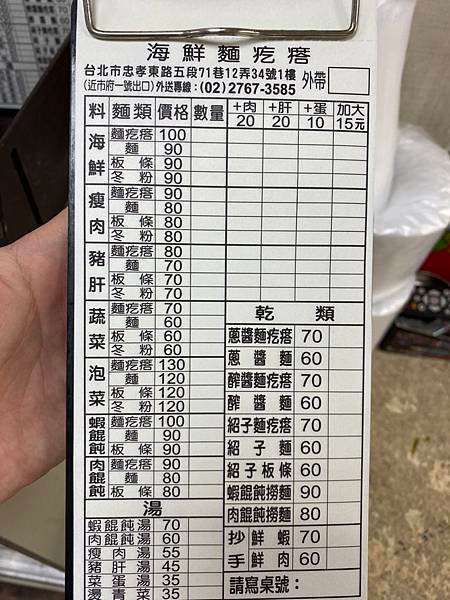 海鮮麵疙瘩
台北市忠孝東路五段71巷12弄34號1樓
(近市府一號出口)外送專線:(02)2767-3585 外帶
料 麵類 價格 數量 +肉20 +肝20 +蛋10 加大15元
海鮮 麵疙瘩 100
麵 90
板條 90
冬粉 90
瘦肉 麵疙瘩 90
麵 80
板條 80
冬粉 80
豬肝 麵疙瘩 80
麵 70
板條 70
冬粉 70
蔬菜 麵疙瘩 70
麵 60
板條 60
冬粉 60
泡菜 麵疙瘩 130
麵 120
板條 120
冬粉 120
蝦餛飩 麵疙瘩 100
麵 90
板條 90
肉餛飩 麵疙瘩 90
麵 80
板條 80
湯
蝦餛飩湯 70
肉餛飩湯 60
瘦肉湯 55
豬肝湯 45
菜蛋湯 35
燙青菜 35
乾類
蔥醬麵疙瘩 70
蔥醬麵 60
醡醬麵疙瘩 70
醡醬麵 60
紹子麵疙瘩 70
紹子麵 60
紹子板條 60
蝦餛飩撈麵 90
肉餛飩撈麵 80
抄手 鮮蝦 70
鮮肉 60
請寫桌號: